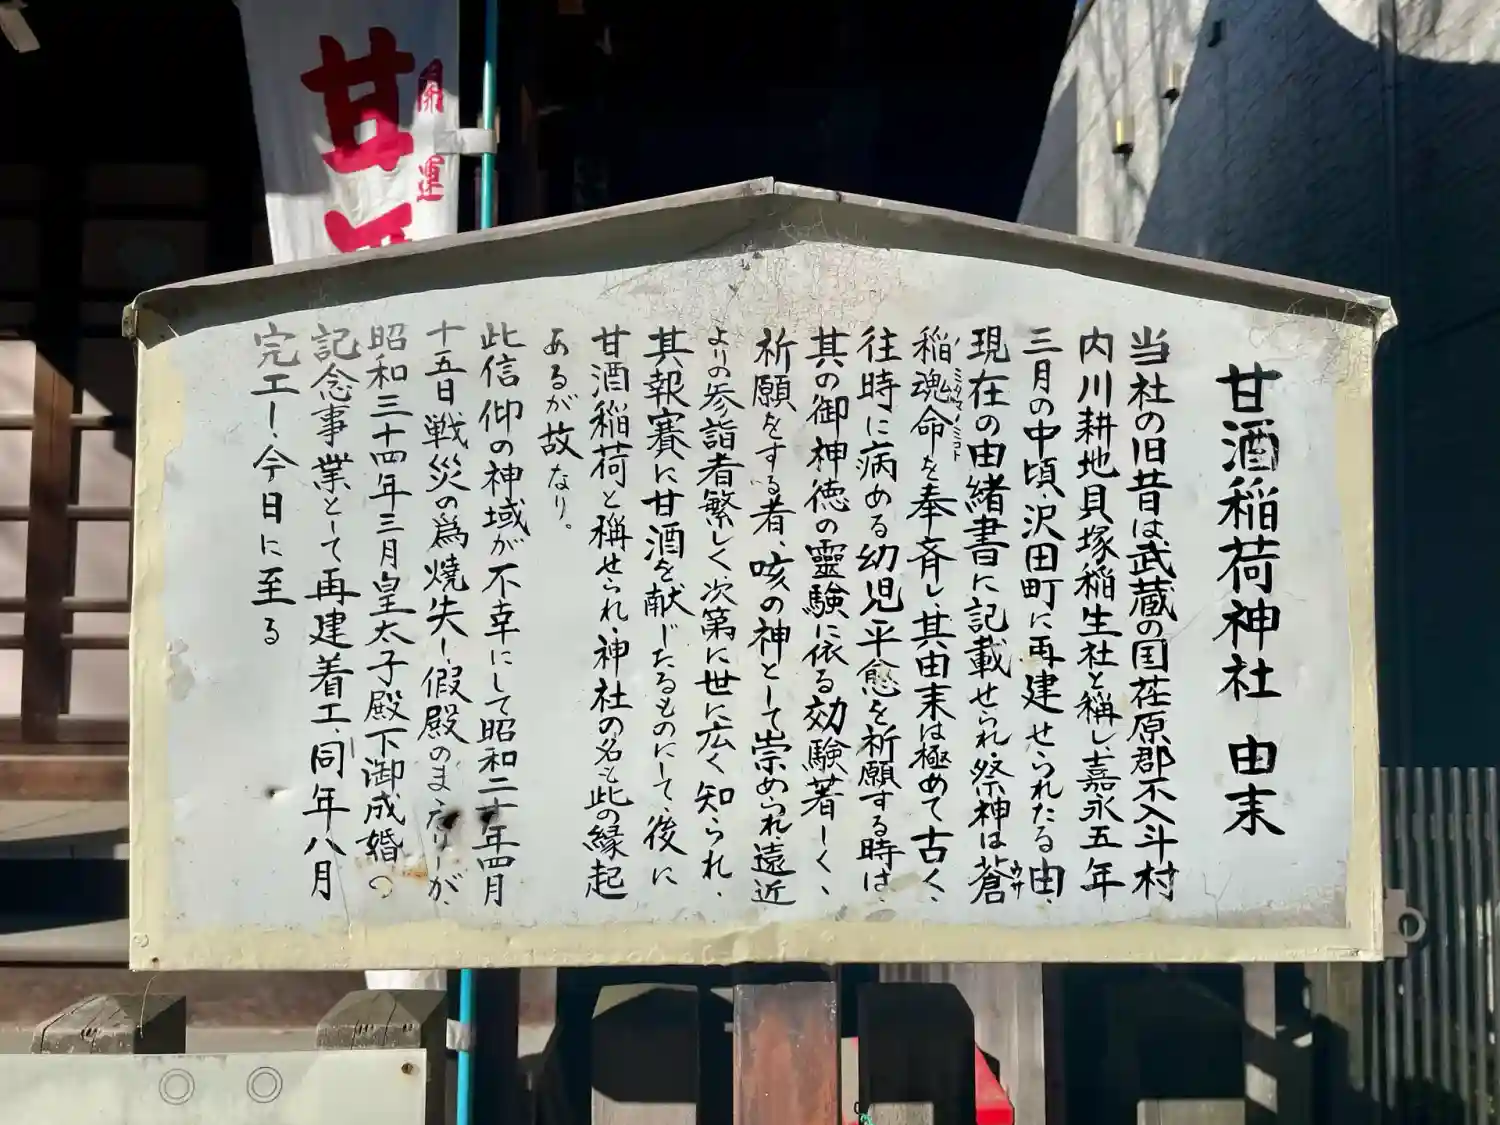 甘酒稲荷神社 由来
当社の旧昔は、武蔵の国荏原郡不入斗村
内川耕地貝塚稲生社と稱し、嘉永五年
三月の中頃、沢田町に再建せられたる由、
現在の由緒書に記載せられ、祭神は蒼
稲魂命を奉斉し、其由来は極めて古く、
往時に病める幼児平愈を祈願する時は、
其の御神徳の靈験に依る効験著しく、
祈願をする者、咳の神として崇められ、遠近
よりの参詣者繁しく、次第に世に広く知られ、
其報賽に甘酒を献じたるものにして、後に
甘酒稲荷と稱せられ、神社の名も此の縁起
あるが故なり。
此信仰の神域が不幸にして昭和二十年四月
十五日戦災の爲焼失し假殿のまゝなりしが、
昭和三十四年三月皇太子殿下御成婚の
記念事業として再建着工、同年八月
完工し、今日に至る
開運
甘